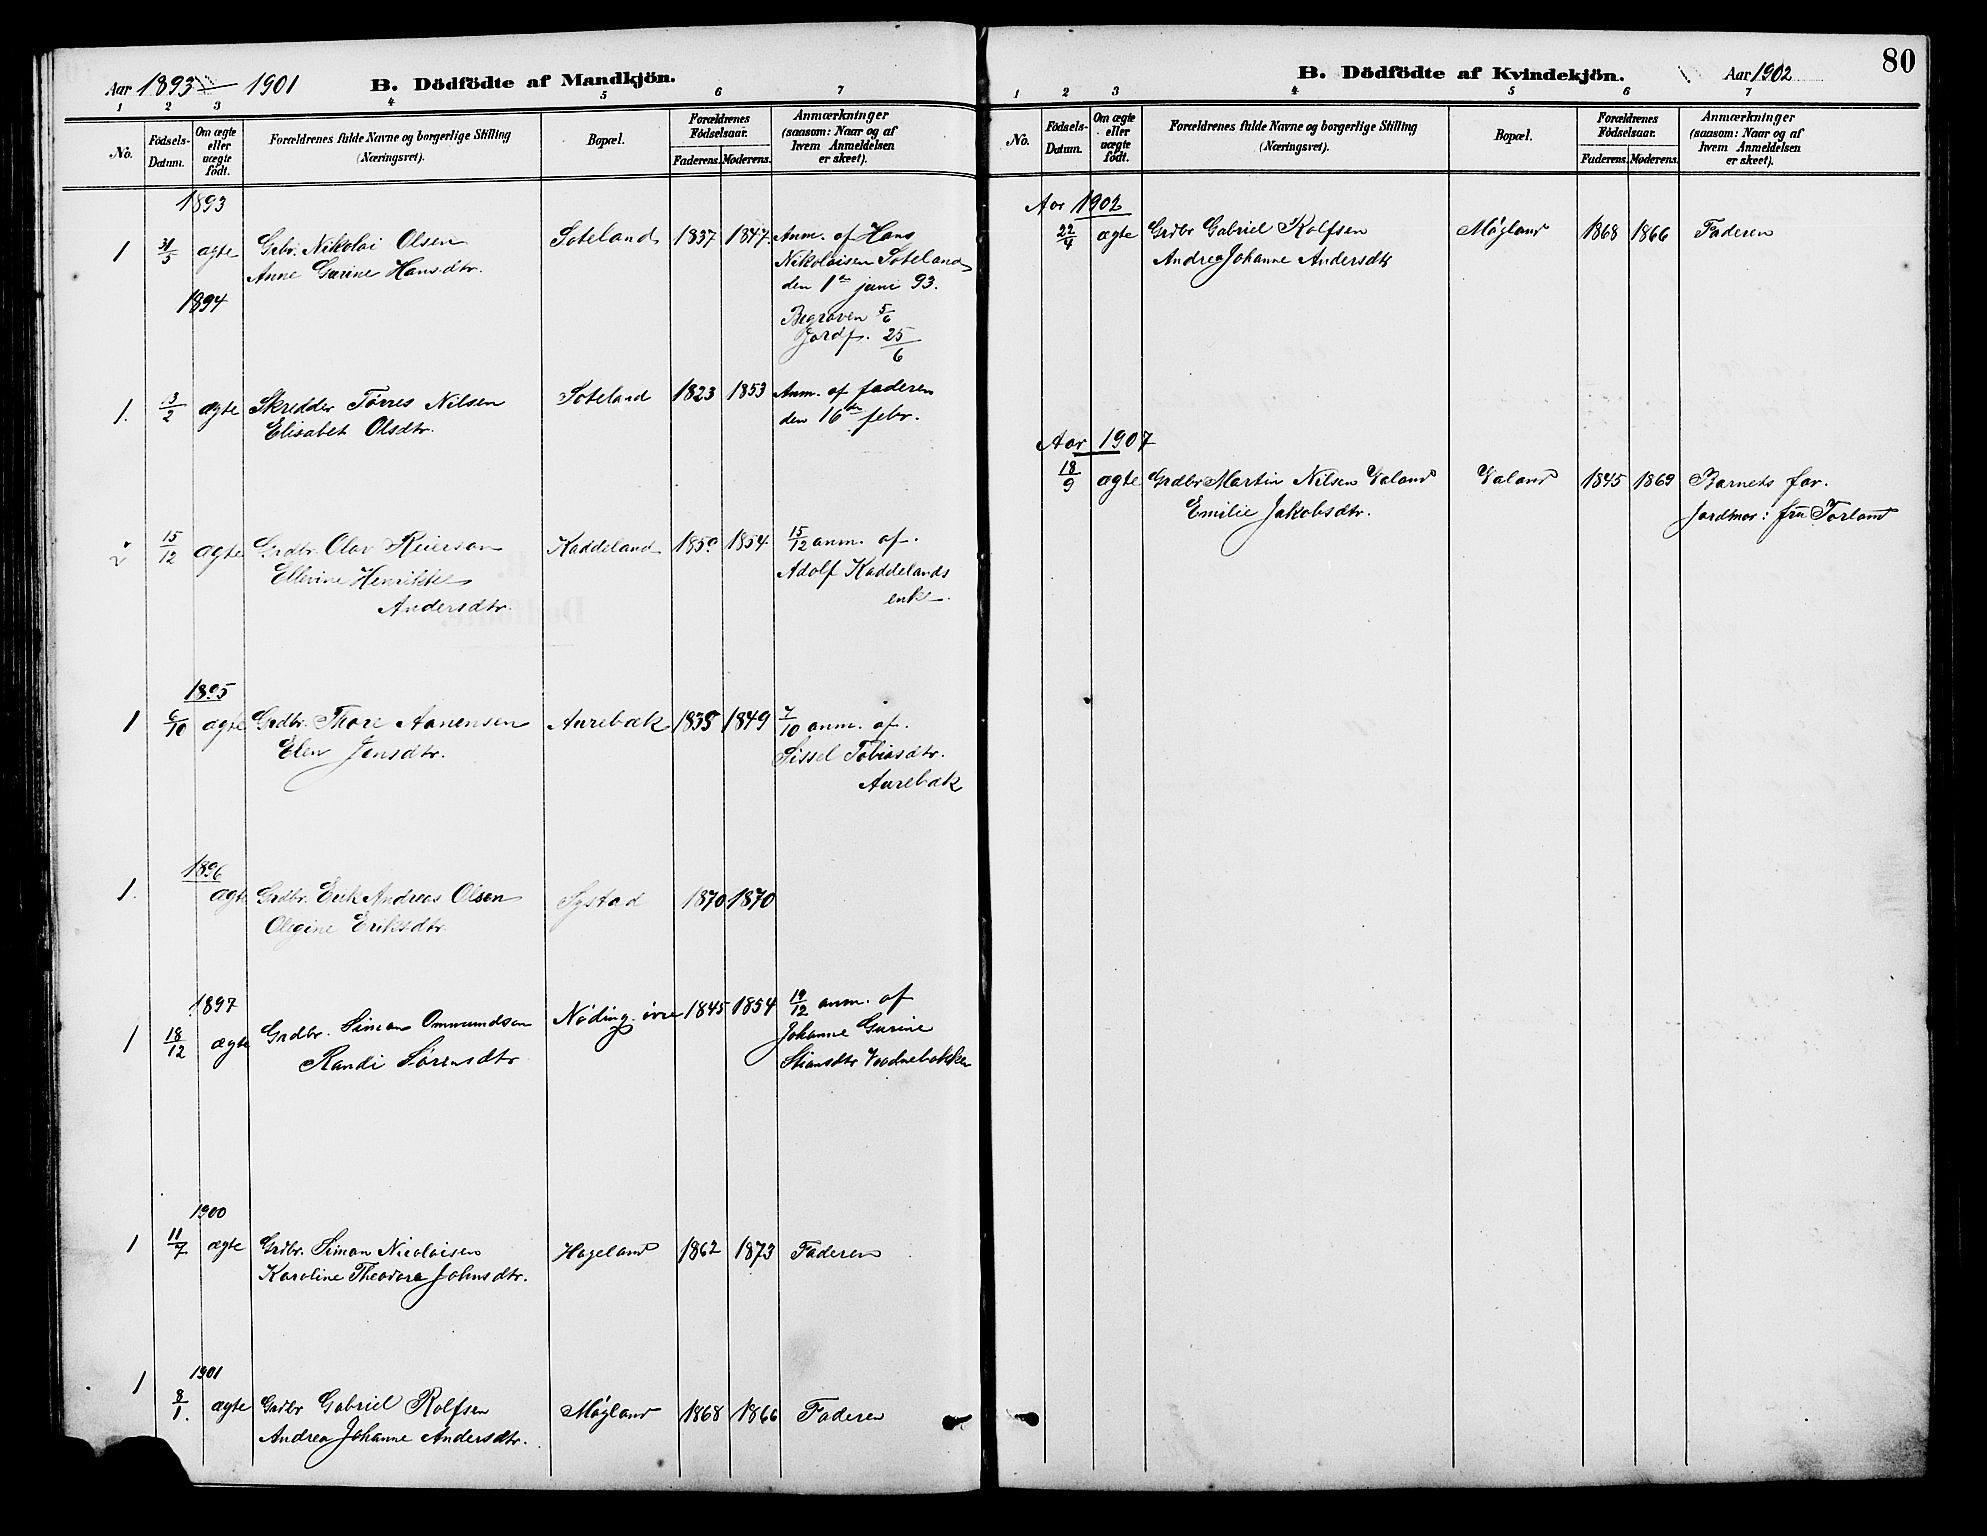 Aar 1893 - 1901 B. Dödfödte af Mandkjön.
1 2 3 4 5 6 7
No. Födsels-Datum. Om ægte eller uægte födt. Forældrenes fulde Navne og borgerlige Stilling (Næringsvei). Bopæl. Forældrenes Födselsaar. Faderens. Moderens. Anmærkninger (saasom: Naar og af hvem Anmeldelsen er skeet).
1893
1 31/5 ægte Grbr. Nikolai Olsen Soteland 1837 1847 Anm. af Hans
Anne Gurine Hansdtr. Nikolaisen Soteland
den 1ste juni 93.
Begraven 5/6
Jordf. 25/6
1894
1. 13/2 ægte Skredder Tørres Nilsen Soteland 1823 1853 Anm. af faderen
Elisabet Olsdtr. den 16de febr.
2 15/12 ægte Grdbr. Olav Reierson Kaddeland 1850 1854 15/12 anm. af.
Ellevine Henrikke Adolf Kaddelands
Andersdtr. enke.
1895
1 6/10 ægte Grdbr. Thore Aanensen Aurebæk 1835 1849 7/10 anm. af.
Elen Jensdtr. Sissel Tobiasdtr.
Aurebæk
1896
1. ægte Grdbr. Erik Andreas Olsen Systad 1870 1870
Olegine Eriksdtr.
1897
1 18/12 ægte Grdbr. Simon Ommundson Nøding øvre 1845 1854 19/12 anm. af
Randi Sørensdtr Johanne Gurine
Stiansdtr
1900
1 11/7 ægte Grdbr. Simon Nicolaisen Hageland 1862 1873 Faderen
Karoline Theodora Johnsdtr.
1901
1 8/1. ægte Grdbr Gabriel Rolfsen Møgland 1868 1866 Faderen
Andrea Johanne Andersdtr.
80
B. Dödfödte af Kvindekjön. Aar 1902
1 2 3 4 5 6 7
No. Födsels-Datum. Om ægte eller uægte födt. Forældrenes fulde Navne og borgerlige Stilling (Næringsvei). Bopæl. Forældrenes Födselsaar. Faderens. Moderens. Anmærkninger (saasom: Naar og af hvem Anmeldelsen er skeet).
Aar 1902
22/4 ægte Grdbr Gabriel Rolfsen Møgland 1868 1866 Faderen
Andrea Johanne Andersdtr
Aar 1907
18/9 ægte Grdbr Martin Nilsen Valand Valand 1845 1869 Barnets far.
Emilie Jakobsdtr. Jordmor: fru Torland